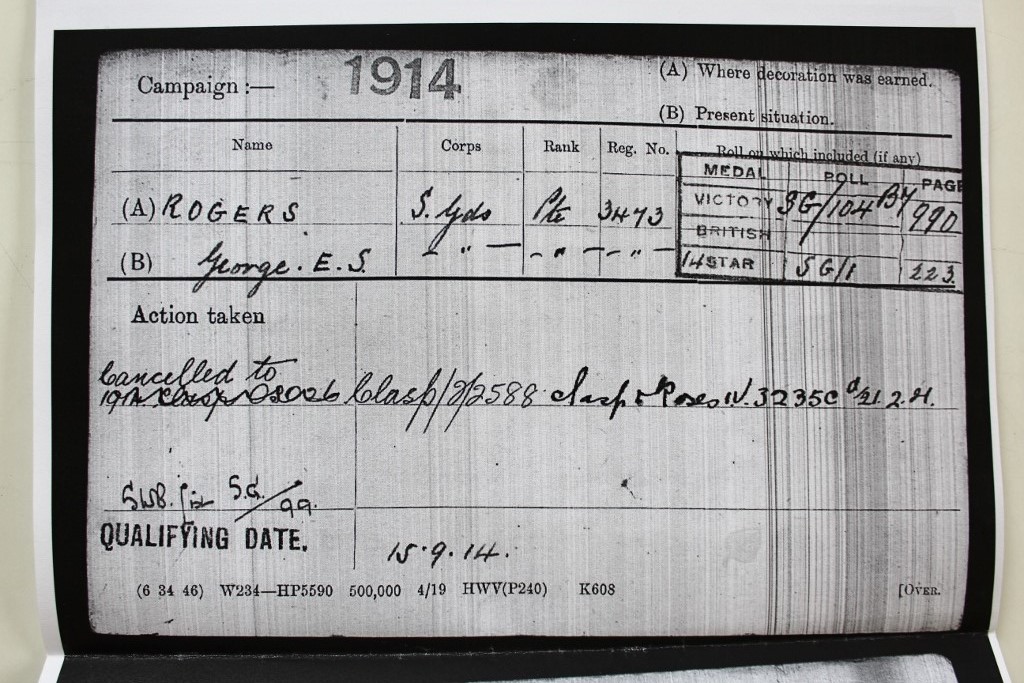 Campaign :— 1914
(A) Where decoration was earned.
(B) Present situation.
Name Corps Rank Reg. No. Roll on which included (if any)
MEDAL ROLL PAGE
(A) ROGERS S. Gds Pte 3473 VICTORY SG/104 B4 990
(B) George. E. S. " " " BRITISH
14 STAR SG/1 223.
Action taken
Cancelled to
1914 Clasp Clasp/2/2588 Clasp & Roses IV. 3235 21.2.
SWB. S.G./99.
QUALIFYING DATE. 15.9.14.
(6 34 46) W234—HP5590 500,000 4/19 HWV(P240) K608 [OVER.